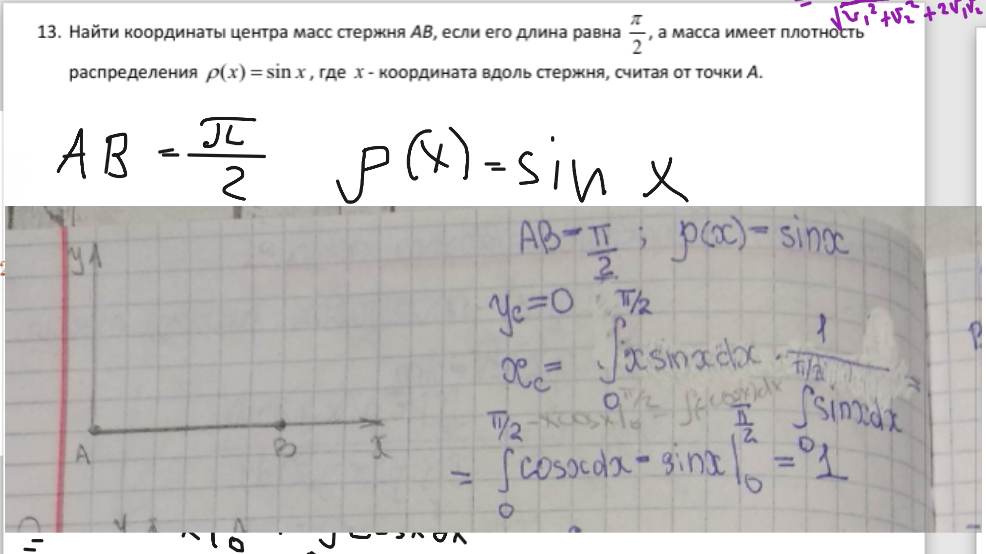 √v₁² + v₂² + 2v₁v₂
13. Найти координаты центра масс стержня AB, если его длина равна π/2, а масса имеет плотность
распределения ρ(x) = sin x, где x - координата вдоль стержня, считая от точки A.
AB = π/2 ρ(x) = sin x
y
A B x
AB = π/2 ; ρ(x) = sinx
y_c = 0
x_c = ∫₀^{π/2} x sinx dx · 1/(∫₀^{π/2} sinx dx) =
= ∫₀^{π/2} cosx dx = sinx |₀^{π/2} = 1